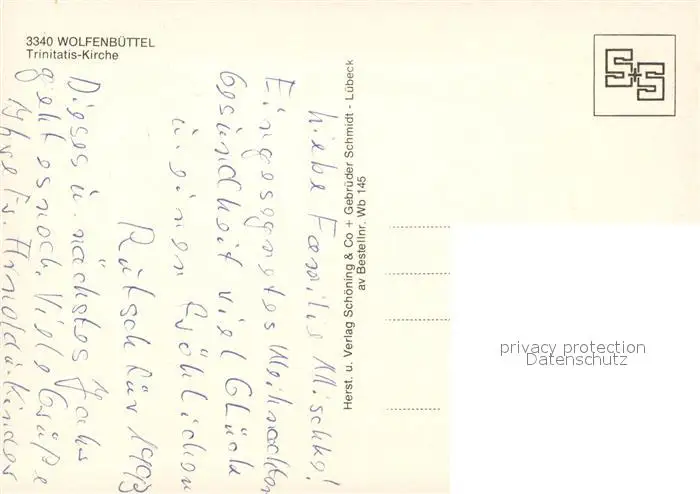 3340 WOLFENBÜTTEL
Trinitatis-Kirche
S+S
Liebe Familie Mischke!
Ein gesegnetes Weihnachten
Gesundheit viel Glück
u. einen fröhlichen
Rutsch für 1993
Dieses u. nächstes Jahr
geht es noch. Viele Grüße
Ihre Fr. Arnold u. Kinder
Herst. u. Verlag Schöning & Co + Gebrüder Schmidt - Lübeck
av Bestellnr. Wb 145
privacy protection
Datenschutz